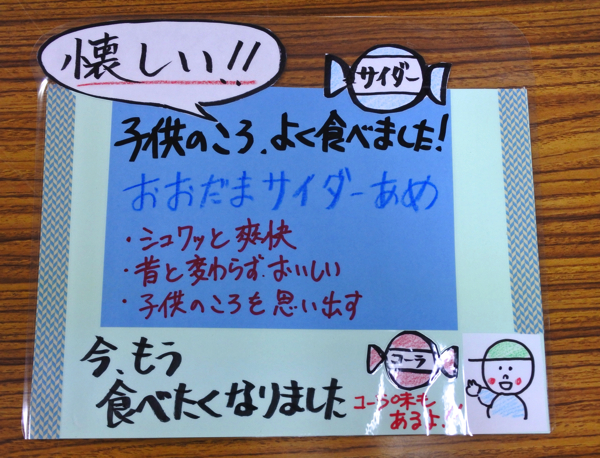 懐しい!!
サイダー
子供のころ、よく食べました!
おおだまサイダーあめ
・シュワッと爽快
・昔と変わらず、おいしい
・子供のころを思い出す
今、もう
食べたくなりました
コーラ
コーラ味も
あるよ!